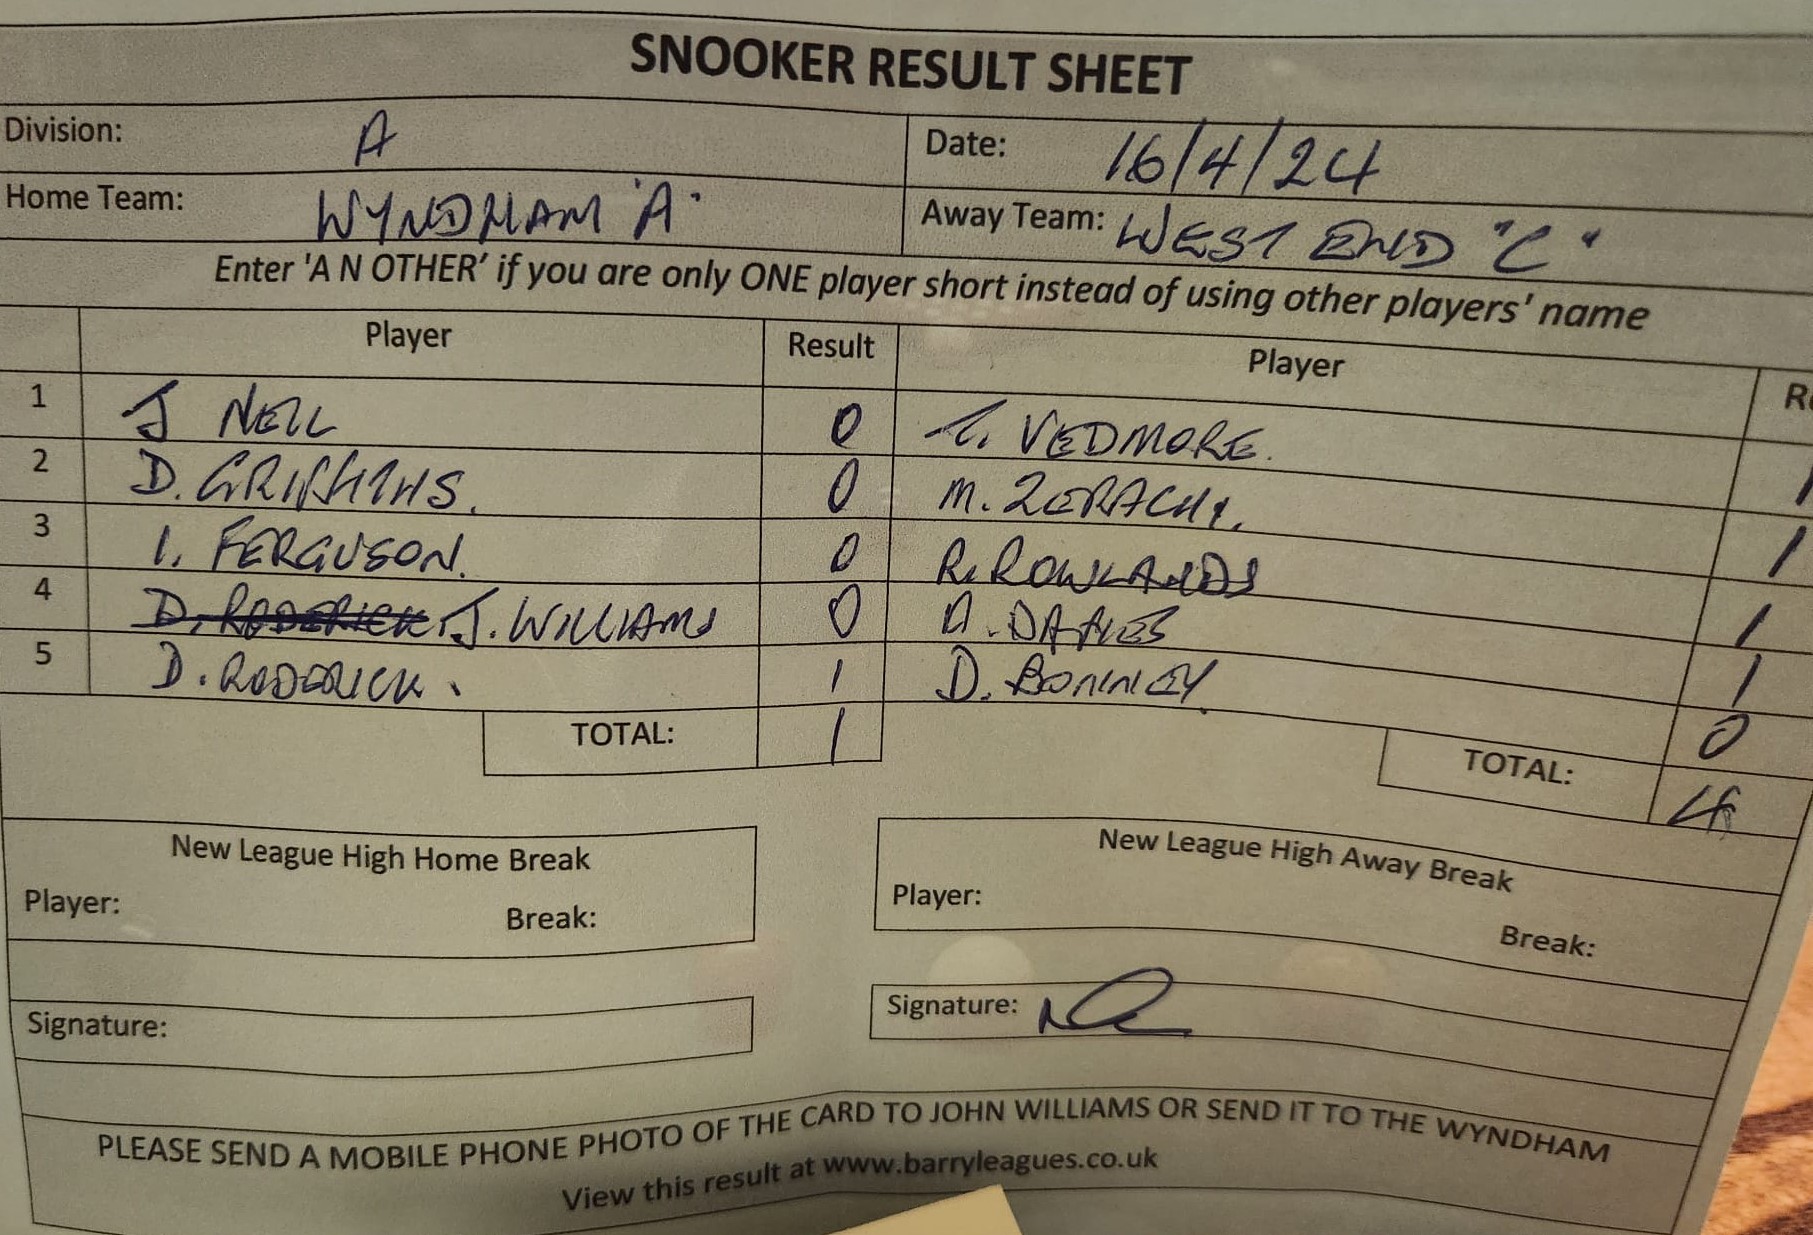 SNOOKER RESULT SHEET
Division: A Date: 16/4/24
Home Team: WYNDHAM 'A' Away Team: WEST END "C"
Enter 'A N OTHER' if you are only ONE player short instead of using other players' name
Player Result Player
1 J NEIL 0 C. VEDMORE. 1
2 D. GRIFFITHS. 0 M. ZERACHI. 1
3 I. FERGUSON. 0 R. ROWLANDS 1
4 D. RODERICK J. WILLIAMS 0 A. DAVIES 1
5 D. RODERICK. 1 D. BONNEY. 0
TOTAL: 1 TOTAL: 4
New League High Home Break New League High Away Break
Player: Break: Player: Break:
Signature: Signature:
PLEASE SEND A MOBILE PHONE PHOTO OF THE CARD TO JOHN WILLIAMS OR SEND IT TO THE WYNDHAM
View this result at www.barryleagues.co.uk